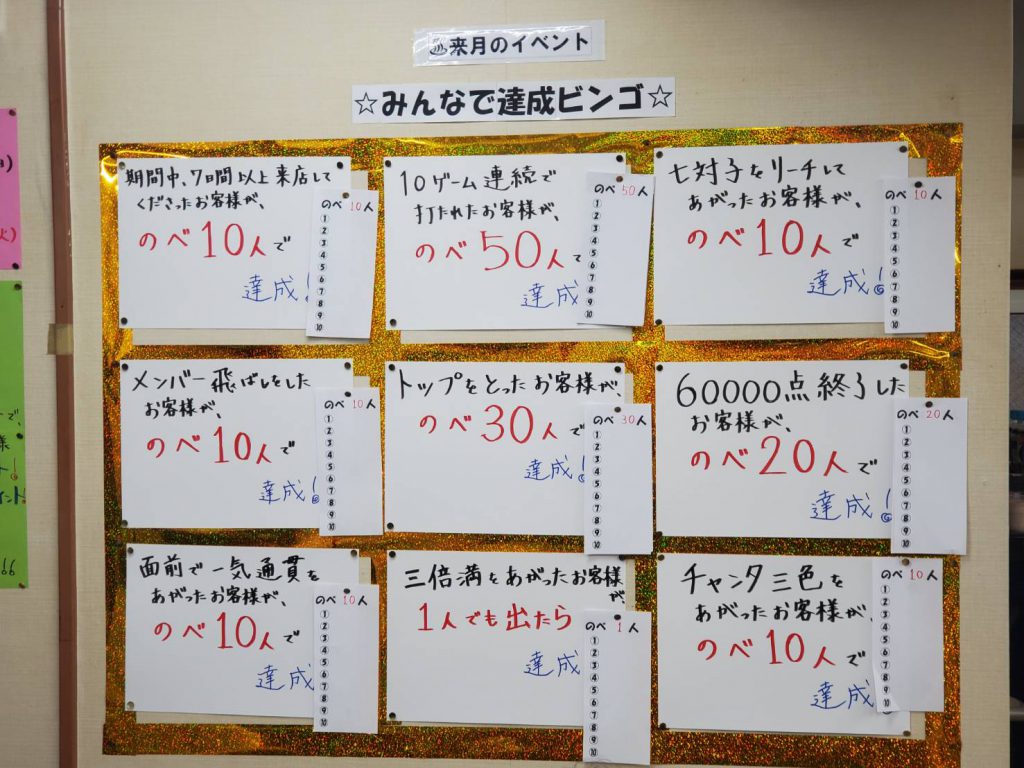 ♨来月のイベント
☆みんなで達成ビンゴ☆
期間中、7日間以上来店して
くださったお客様が、
のべ10人で
達成!
のべ10人
①
②
③
④
⑤
⑥
⑦
⑧
⑨
⑩
10ゲーム連続で
打たれたお客様が、
のべ50人で
達成
のべ50人
①
②
③
④
⑤
⑥
⑦
⑧
⑨
⑩
七対子をリーチして
あがったお客様が、
のべ10人で
達成!
のべ10人
①
②
③
④
⑤
⑥
⑦
⑧
⑨
⑩
メンバー飛ばしをした
お客様が、
のべ10人で
達成!
のべ10人
①
②
③
④
⑤
⑥
⑦
⑧
⑨
⑩
トップをとったお客様が、
のべ30人で
達成!
のべ30人
①
②
③
④
⑤
⑥
⑦
⑧
⑨
⑩
60000点終了した
お客様が、
のべ20人で
達成!
のべ20人
①
②
③
④
⑤
⑥
⑦
⑧
⑨
⑩
面前で一気通貫を
あがったお客様が、
のべ10人で
達成
のべ10人
①
②
③
④
⑤
⑥
⑦
⑧
⑨
⑩
三倍満をあがったお客様
が
1人でも出たら
達成
のべ1人
①
②
③
④
⑤
⑥
⑦
⑧
⑨
⑩
チャンタ三色を
あがったお客様が、
のべ10人で
達成
のべ10人
①
②
③
④
⑤
⑥
⑦
⑧
⑨
⑩